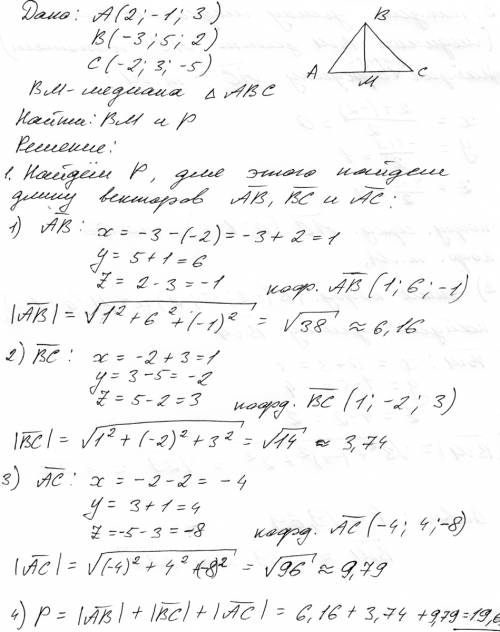 Дано: A(2; -1; 3)
B(-3; 5; 2)
C(-2; 3; -5)
BM - медиана △ ABC
Найти: BM и P
Решение:
B
A
M
C
1. Найдём P, для этого найдем
длину векторов AB, BC и AC:
1) AB: x = -3 - (-2) = -3 + 2 = 1
y = 5 + 1 = 6
z = 2 - 3 = -1 коор. AB (1; 6; -1)
|AB| = √1² + 6² + (-1)² = √38 ≈ 6,16
2) BC: x = -2 + 3 = 1
y = 3 - 5 = -2
z = 5 - 2 = 3 коорд. BC (1; -2; 3)
|BC| = √1² + (-2)² + 3² = √14 ≈ 3,74
3) AC: x = -2 - 2 = -4
y = 3 + 1 = 4
z = -5 - 3 = -8 коорд. AC (-4; 4; -8)
|AC| = √(-4)² + 4² + (-8)² = √96 ≈ 9,79
4) P = |AB| + |BC| + |AC| = 6,16 + 3,74 + 9,79 = 19,6